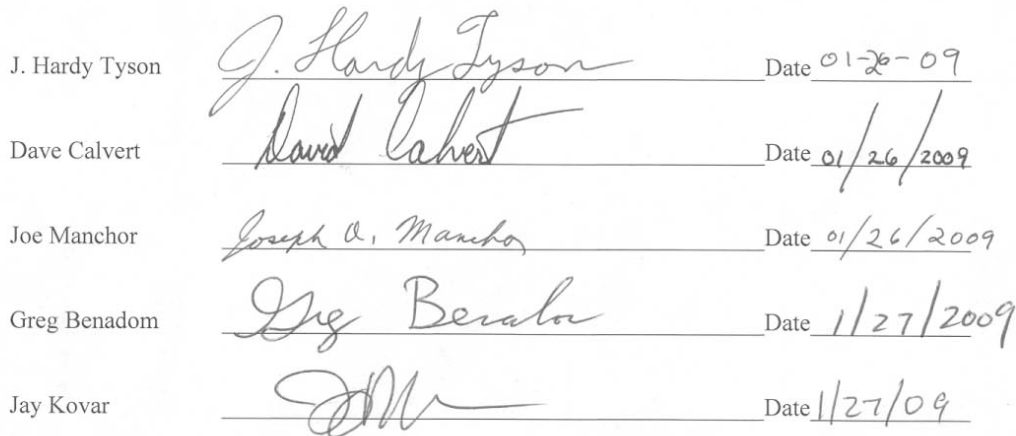 J. Hardy Tyson J. Hardy Tyson Date 01-26-09
Dave Calvert David Calvert Date 01/26/2009
Joe Manchor Joseph A. Manchor Date 01/26/2009
Greg Benadom Greg Date 1/27/2009
Jay Kovar Date 1/27/09